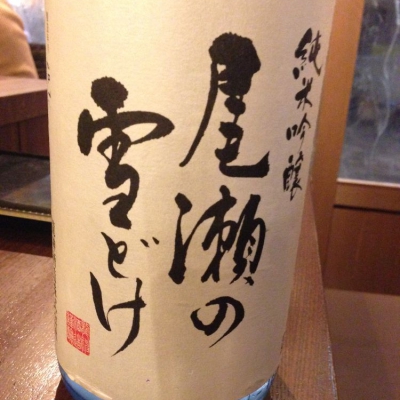 純米吟醸
尾瀬の
雪どけ